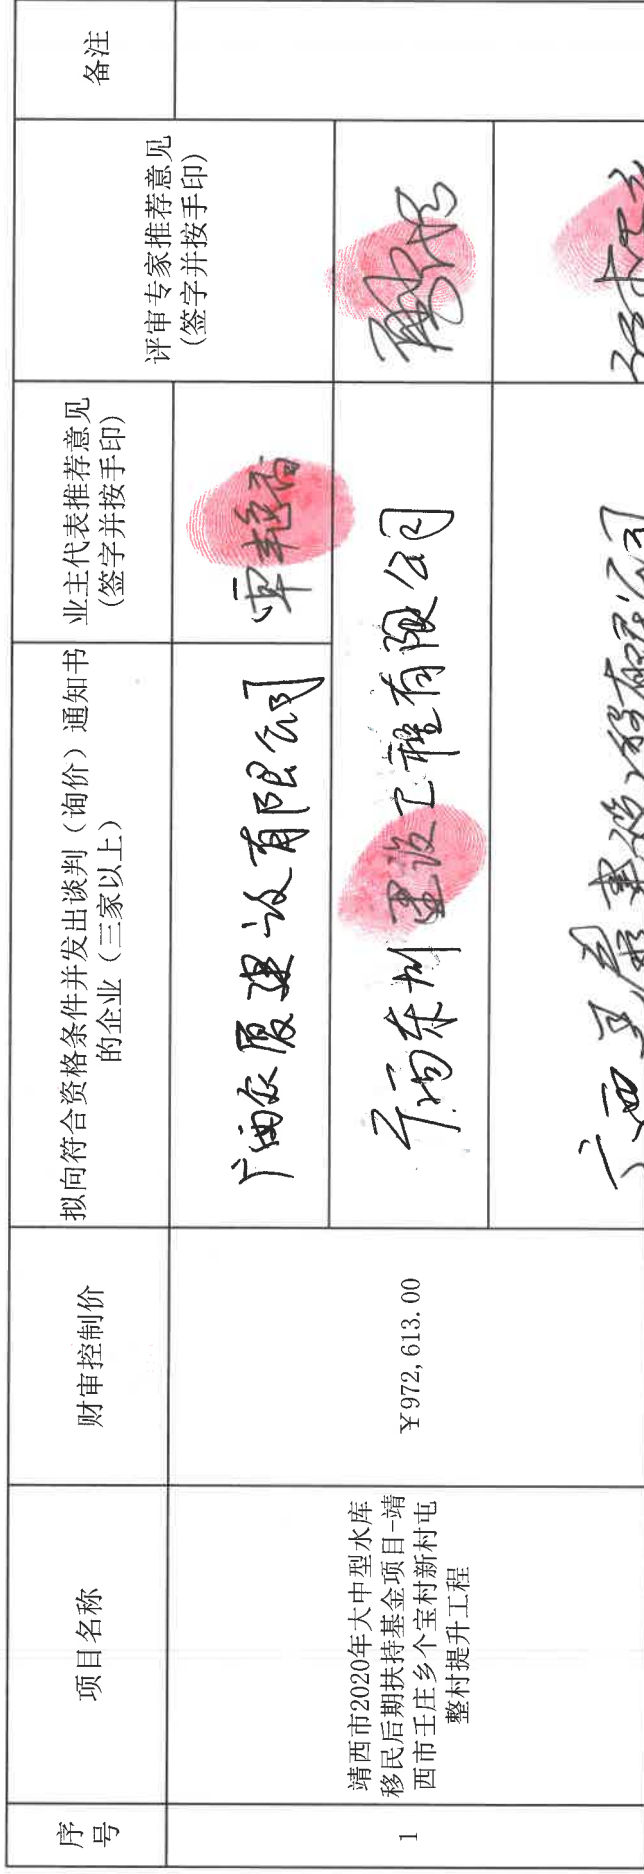 序
号
项目名称
财审控制价
拟向符合资格条件并发出谈判（询价）通知书
的企业（三家以上）
业主代表推荐意见
(签字并按手印)
评审专家推荐意见
(签字并按手印)
备注
1
靖西市2020年大中型水库
移民后期扶持基金项目-靖
西市壬庄乡个宝村新村屯
整村提升工程
￥972,613.00
广西农厦建设有限公司
广西东州建设工程有限公司
广西